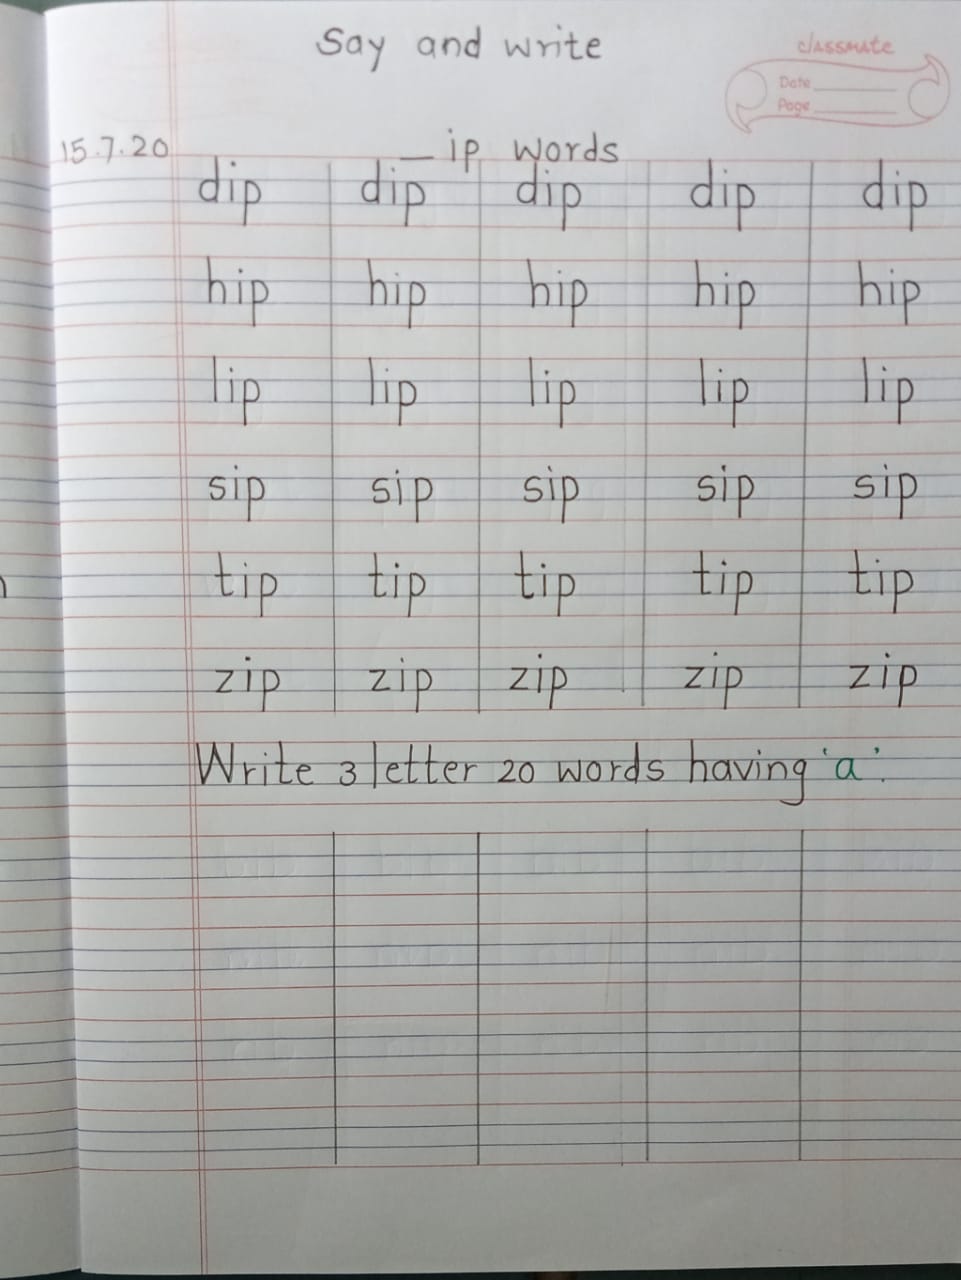 Say and write
classmate
Date
Page
15.7.20
_ip words
dip dip dip dip dip
hip hip hip hip hip
lip lip lip lip lip
sip sip sip sip sip
tip tip tip tip tip
zip zip zip zip zip
Write 3 letter 20 words having 'a'.